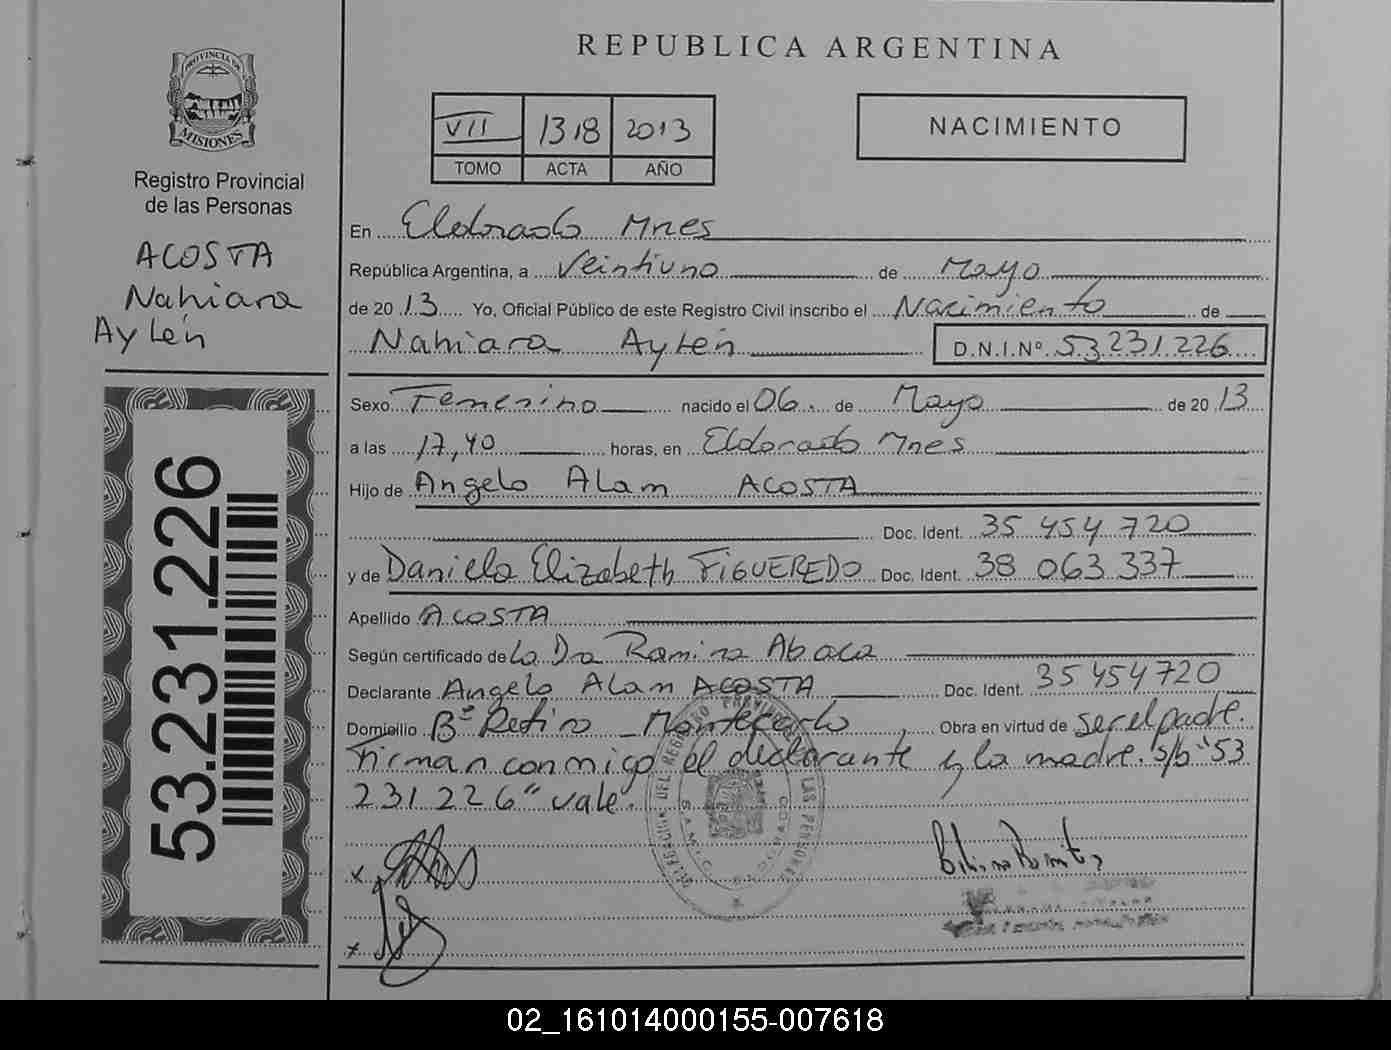 REPUBLICA ARGENTINA
PROVINCIA DE
MISIONES
Registro Provincial
de las Personas
ACOSTA
Nahiara
Aylén
53.231.226
VII 1318 2013
TOMO ACTA AÑO
NACIMIENTO
En Eldorado Mnes
República Argentina, a Veintiuno de Mayo
de 2013 Yo, Oficial Público de este Registro Civil inscribo el Nacimiento de
Nahiara Aylén D.N.I.Nº 53.231.226
Sexo Femenino nacido el 06 de Mayo de 2013
a las 17,40 horas, en Eldorado Mnes
Hijo de Angelo Alam ACOSTA
Doc. Ident. 35 454 720
y de Daniela Elizabeth FIGUEREDO Doc. Ident. 38 063 337
Apellido ACOSTA
Según certificado de La Dra Ramira Abaca
Declarante Angelo Alam ACOSTA Doc. Ident. 35 454 720
Domicilio Bº Retiro - Montecarlo Obra en virtud de ser el padre.
Firman conmigo el declarante y la madre. S/b "53
231 226" vale.
DELEGACION DEL REGISTRO PROVINCIAL DE LAS PERSONAS
ELDORADO
x
x
02_161014000155-007618